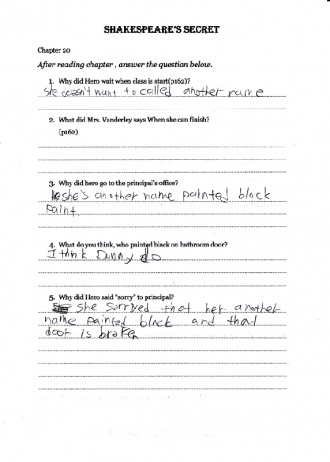 SHAKESPEARE'S SECRET
Chapter 20
After reading chapter , answer the question below.
1. Why did Hero wait when class is start(p162)?
she doesn't want to called another name
2. What did Mrs. Vanderley says When she can finish?
(p162)
3. Why did hero go to the principal's office?
she's another name painted black
paint.
4. What do you think, who painted black on bathroom door?
I think Danny do
5. Why did Hero said "sorry" to principal?
she sorryed that her another
name painted black and that
door is broken